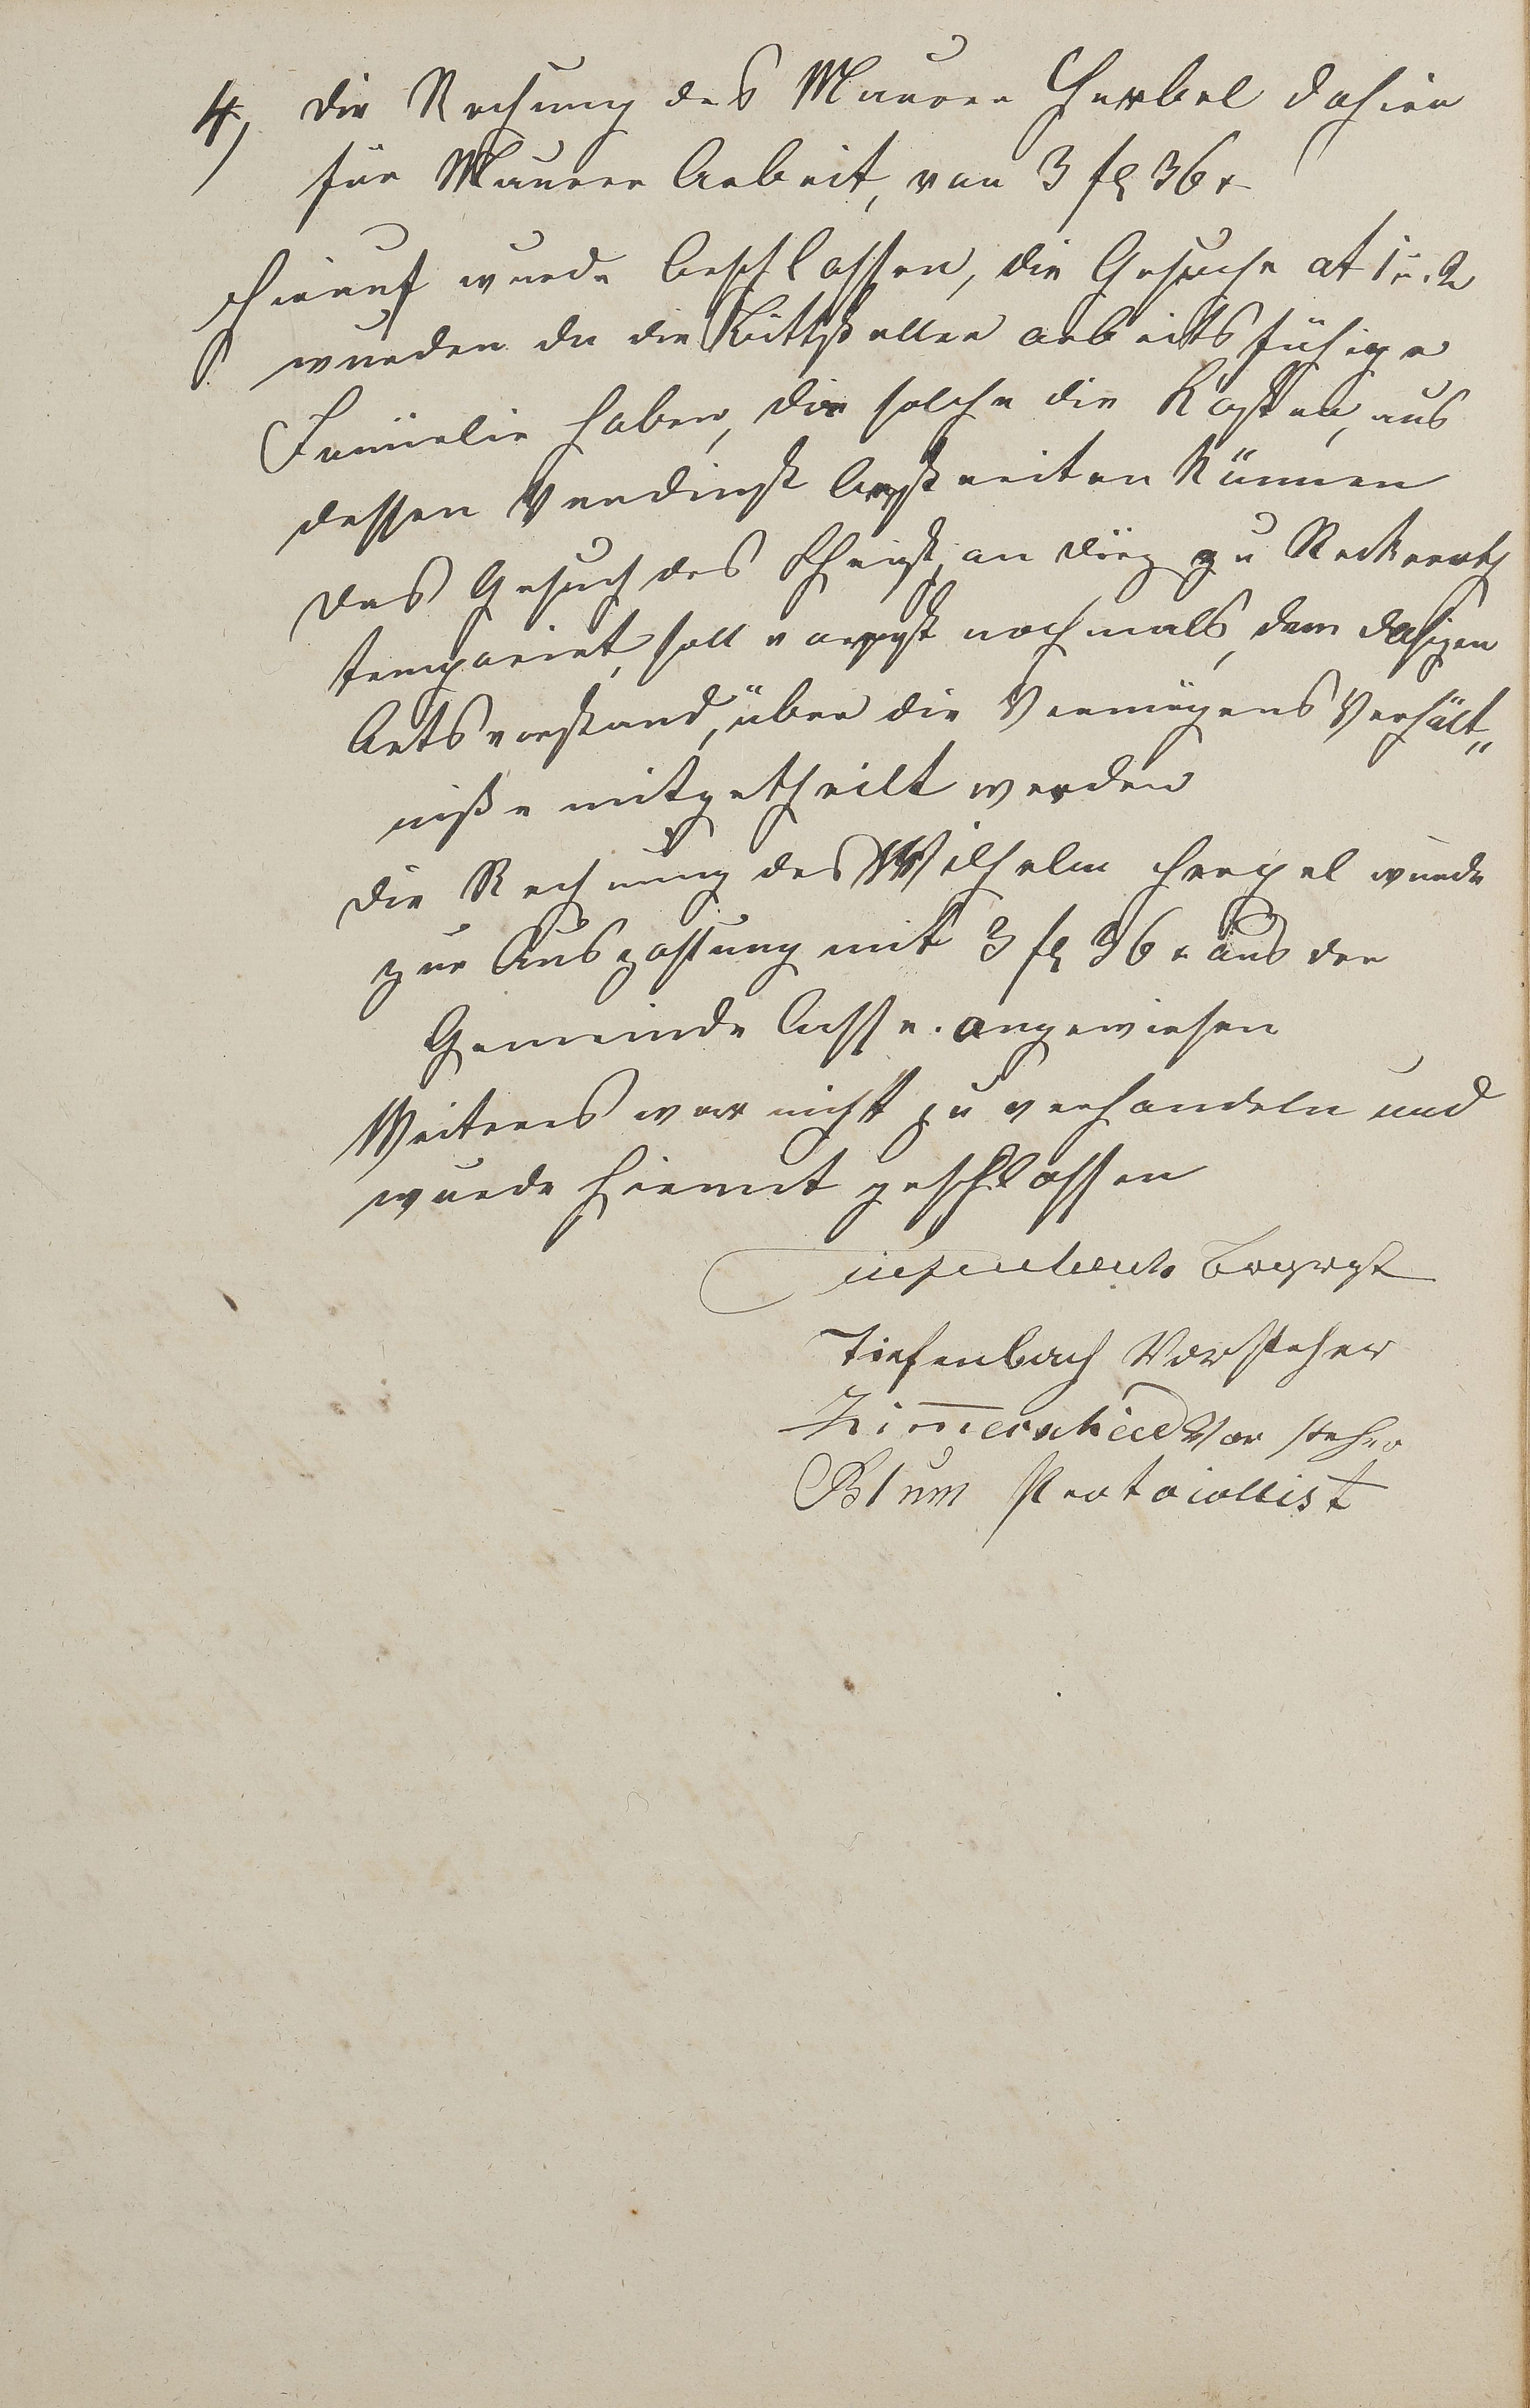 4, die Rechnung des Maurer Herbel dahier
für Maurer Arbeit, von 3 fl 36 x
Hierauf wurde beschlossen, die Gesuche at 1 u. 2
wurden da die Bittsteller arbeitsfähige
Famielie haben, die solche die Kosten, aus
dessen Verdinst bestreiten können
das Gesuch des Christian Dörg zu Reckenroth
temporirt, soll vorerst nochmals, dem dasigen
Ortsvorstand, über die Vermögens Verhält„
niße mitgetheilt werden
die Rechnung des Wilhelm Herpel wurde
zur Auszahlung mit 3 fl 36 x aus der
Gemeinde Casse. angewiesen
Weiteres war nicht zu verhandeln und
wurde hiermit geschlossen
Tiefenbach
Tiefenbach Vorsteher
Zimerschied Vorsteher
Blum Protocollist